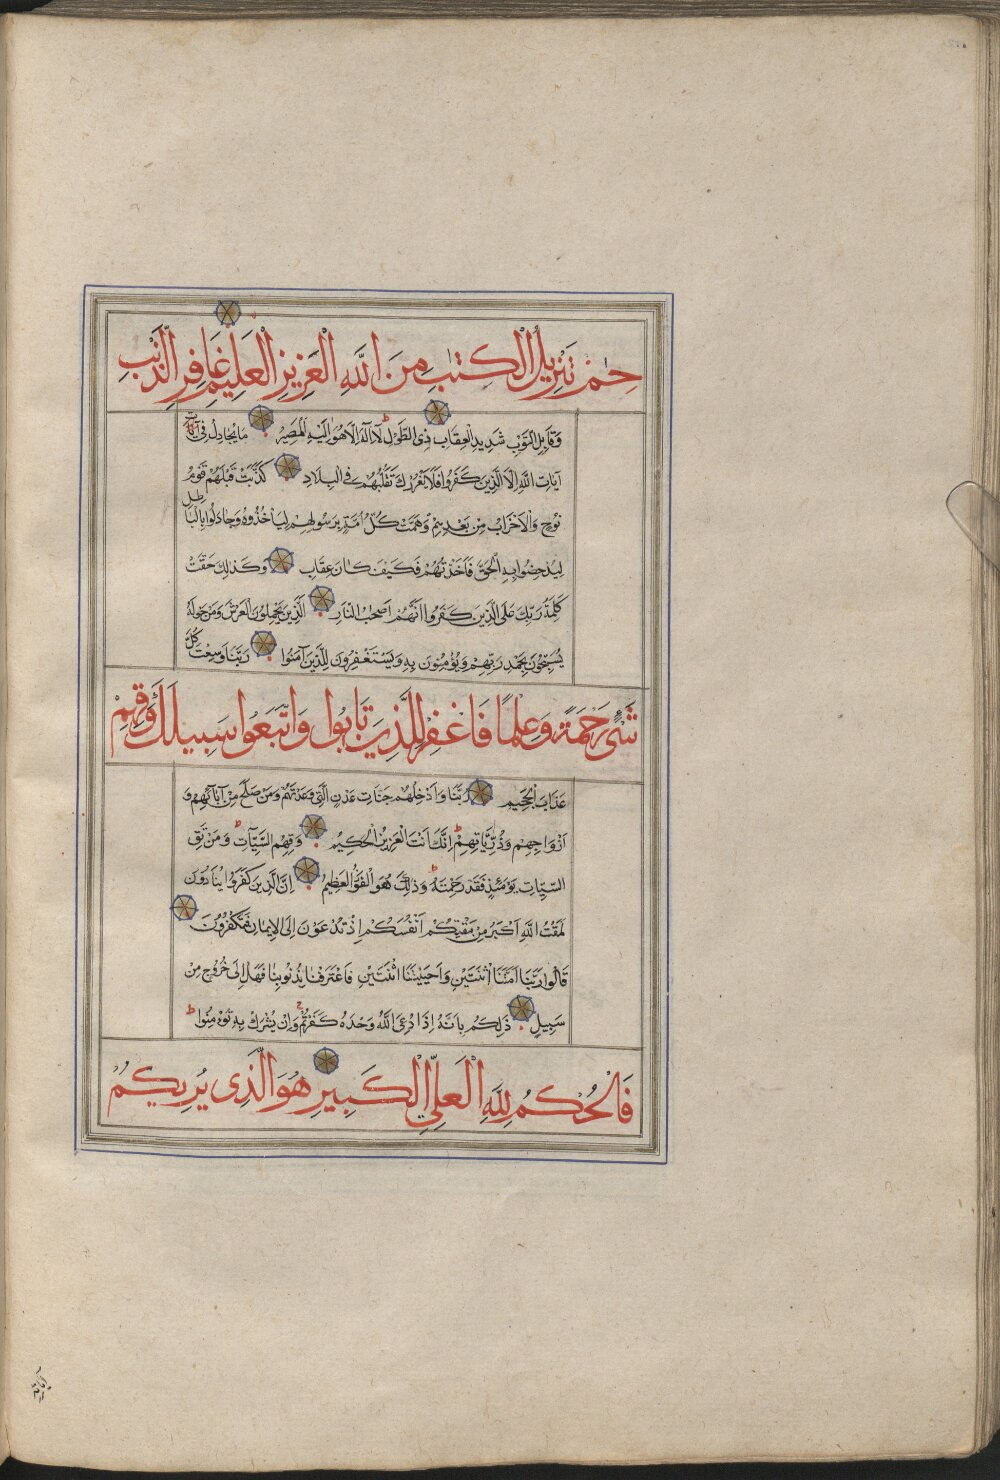 حم تَنزِيلُ الْكِتٰبِ مِنَ اللَّهِ الْعَزِيزِ الْعَلِيمِ غَافِرِ الذَّنْبِ
وَقَابِلِ التَّوْبِ شَدِيدِ الْعِقَابِ ذِى الطَّوْلِ لَا اِلٰهَ اِلَّا هُوَ اِلَيْهِ الْمَصِيرُ مَا يُجَادِلُ فِى
آيَاتِ اللَّهِ اِلَّا الَّذِينَ كَفَرُوا فَلَا يَغْرُرْكَ تَقَلُّبُهُمْ فِى الْبِلَادِ كَذَّبَتْ قَبْلَهُمْ قَوْمُ
نُوحٍ وَالْاَحْزَابُ مِنْ بَعْدِهِمْ وَهَمَّتْ كُلُّ اُمَّةٍ بِرَسُولِهِمْ لِيَاْخُذُوهُ وَجَادَلُوا بِالْبَاطِلِ
لِيُدْحِضُوا بِهِ الْحَقَّ فَاَخَذْتُهُمْ فَكَيْفَ كَانَ عِقَابِ وَكَذٰلِكَ حَقَّتْ
كَلِمَةُ رَبِّكَ عَلَى الَّذِينَ كَفَرُوا اَنَّهُمْ اَصْحٰبُ النَّارِ الَّذِينَ يَحْمِلُونَ الْعَرْشَ وَمَنْ حَوْلَهُ
يُسَبِّحُونَ بِحَمْدِ رَبِّهِمْ وَيُؤْمِنُونَ بِهِ وَيَسْتَغْفِرُونَ لِلَّذِينَ آمَنُوا رَبَّنَا وَسِعْتَ كُلَّ
شَىْءٍ رَحْمَةً وَعِلْمًا فَاغْفِرْ لِلَّذِينَ تَابُوا وَاتَّبَعُوا سَبِيلَكَ وَقِهِمْ
عَذَابَ الْجَحِيمِ رَبَّنَا وَاَدْخِلْهُمْ جَنَّاتِ عَدْنٍ الَّتِى وَعَدْتَهُمْ وَمَنْ صَلَحَ مِنْ آبَائِهِمْ وَ
اَزْوَاجِهِمْ وَذُرِّيَّاتِهِمْ اِنَّكَ اَنْتَ الْعَزِيزُ الْحَكِيمُ وَقِهِمُ السَّيِّآتِ وَمَنْ تَقِ
السَّيِّاٰتِ يَوْمَئِذٍ فَقَدْ رَحِمْتَهُ وَذٰلِكَ هُوَ الْفَوْزُ الْعَظِيمُ اِنَّ الَّذِينَ كَفَرُوا يُنَادَوْنَ
لَمَقْتُ اللَّهِ اَكْبَرُ مِنْ مَقْتِكُمْ اَنْفُسَكُمْ اِذْ تُدْعَوْنَ اِلَى الْاِيمَانِ فَتَكْفُرُونَ
قَالُوا رَبَّنَا اَمَتَّنَا اثْنَتَيْنِ وَاَحْيَيْتَنَا اثْنَتَيْنِ فَاعْتَرَفْنَا بِذُنُوبِنَا فَهَلْ اِلَى خُرُوجٍ مِنْ
سَبِيلٍ ذٰلِكُمْ بِاَنَّهُ اِذَا دُعِىَ اللَّهُ وَحْدَهُ كَفَرْتُمْ وَاِنْ يُشْرَكْ بِهِ تُؤْمِنُوا
فَالْحُكْمُ لِلَّهِ الْعَلِىِّ الْكَبِيرِ هُوَ الَّذِى يُرِيكُمْ